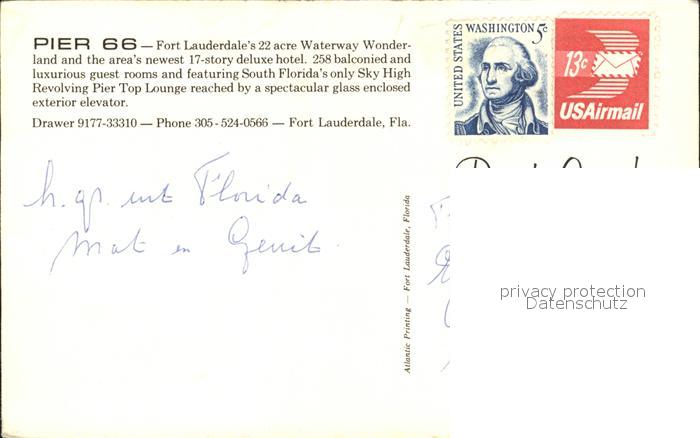 PIER 66 — Fort Lauderdale's 22 acre Waterway Wonder-
land and the area's newest 17-story deluxe hotel. 258 balconied and
luxurious guest rooms and featuring South Florida's only Sky High
Revolving Pier Top Lounge reached by a spectacular glass enclosed
exterior elevator.
Drawer 9177-33310 — Phone 305-524-0566 — Fort Lauderdale, Fla.
UNITED STATES
WASHINGTON 5c
13c
USAirmail
h. gr. uit Florida
Mat en
Atlantic Printing — Fort Lauderdale, Florida
privacy protection
Datenschutz